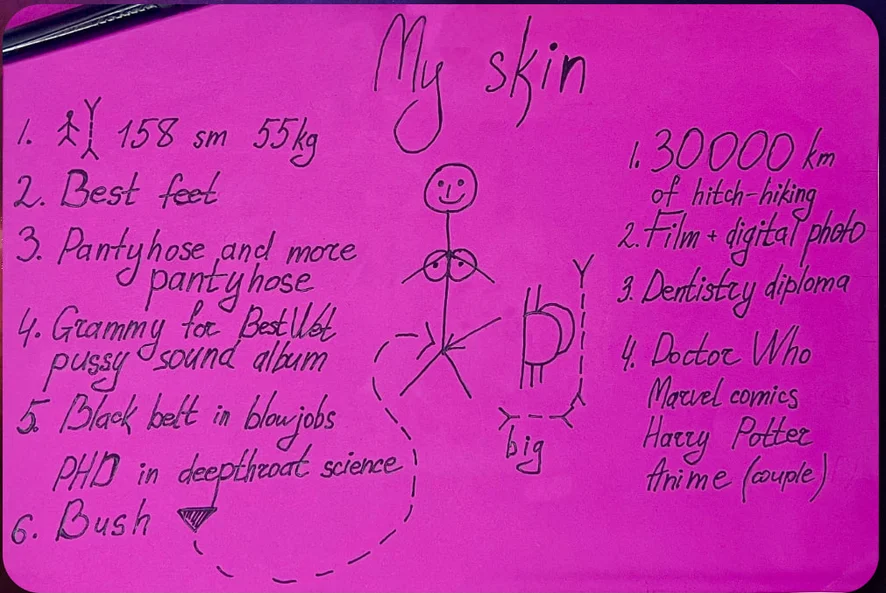 My skin
1. 158 sm 55kg
2. Best feet
3. Pantyhose and more
pantyhose
4. Grammy for Best Wet
pussy sound album
5. Black belt in blowjobs
PHD in deepthroat science
6. Bush
big
1. 30000 km
of hitch-hiking
2. Film + digital photo
3. Dentistry diploma
4. Doctor Who
Marvel comics
Harry Potter
Anime (couple)